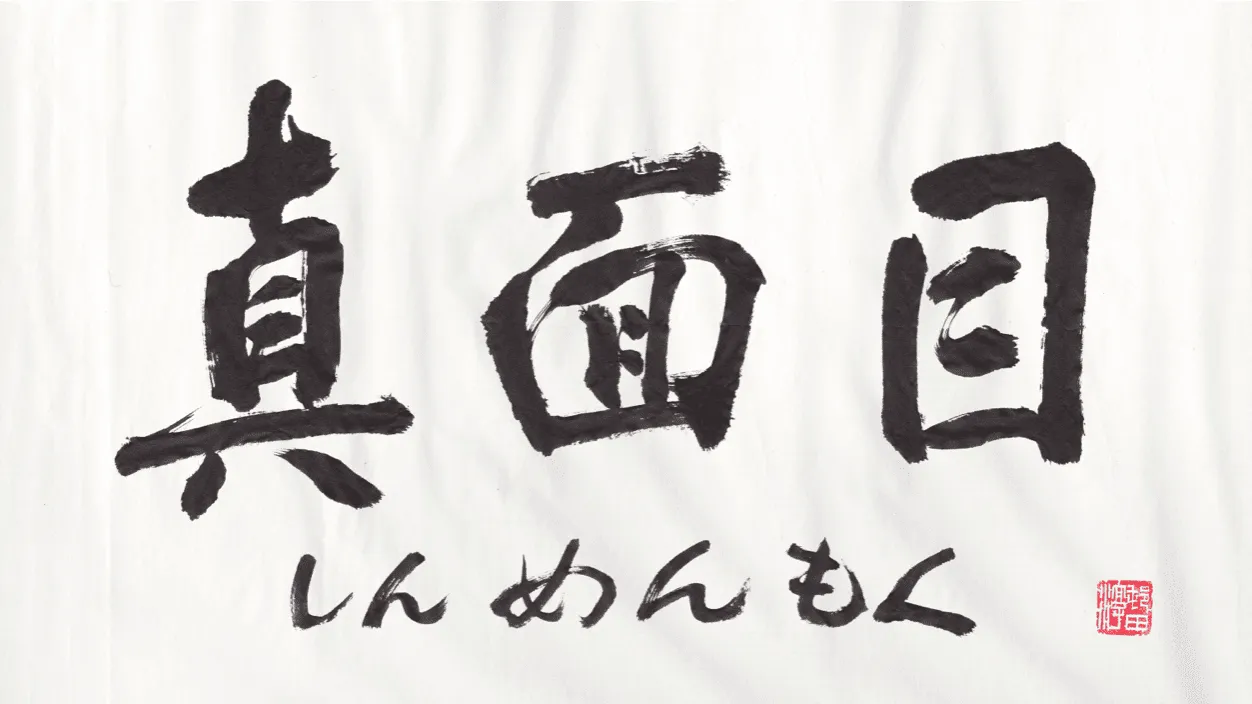 真面目
しんめんもく